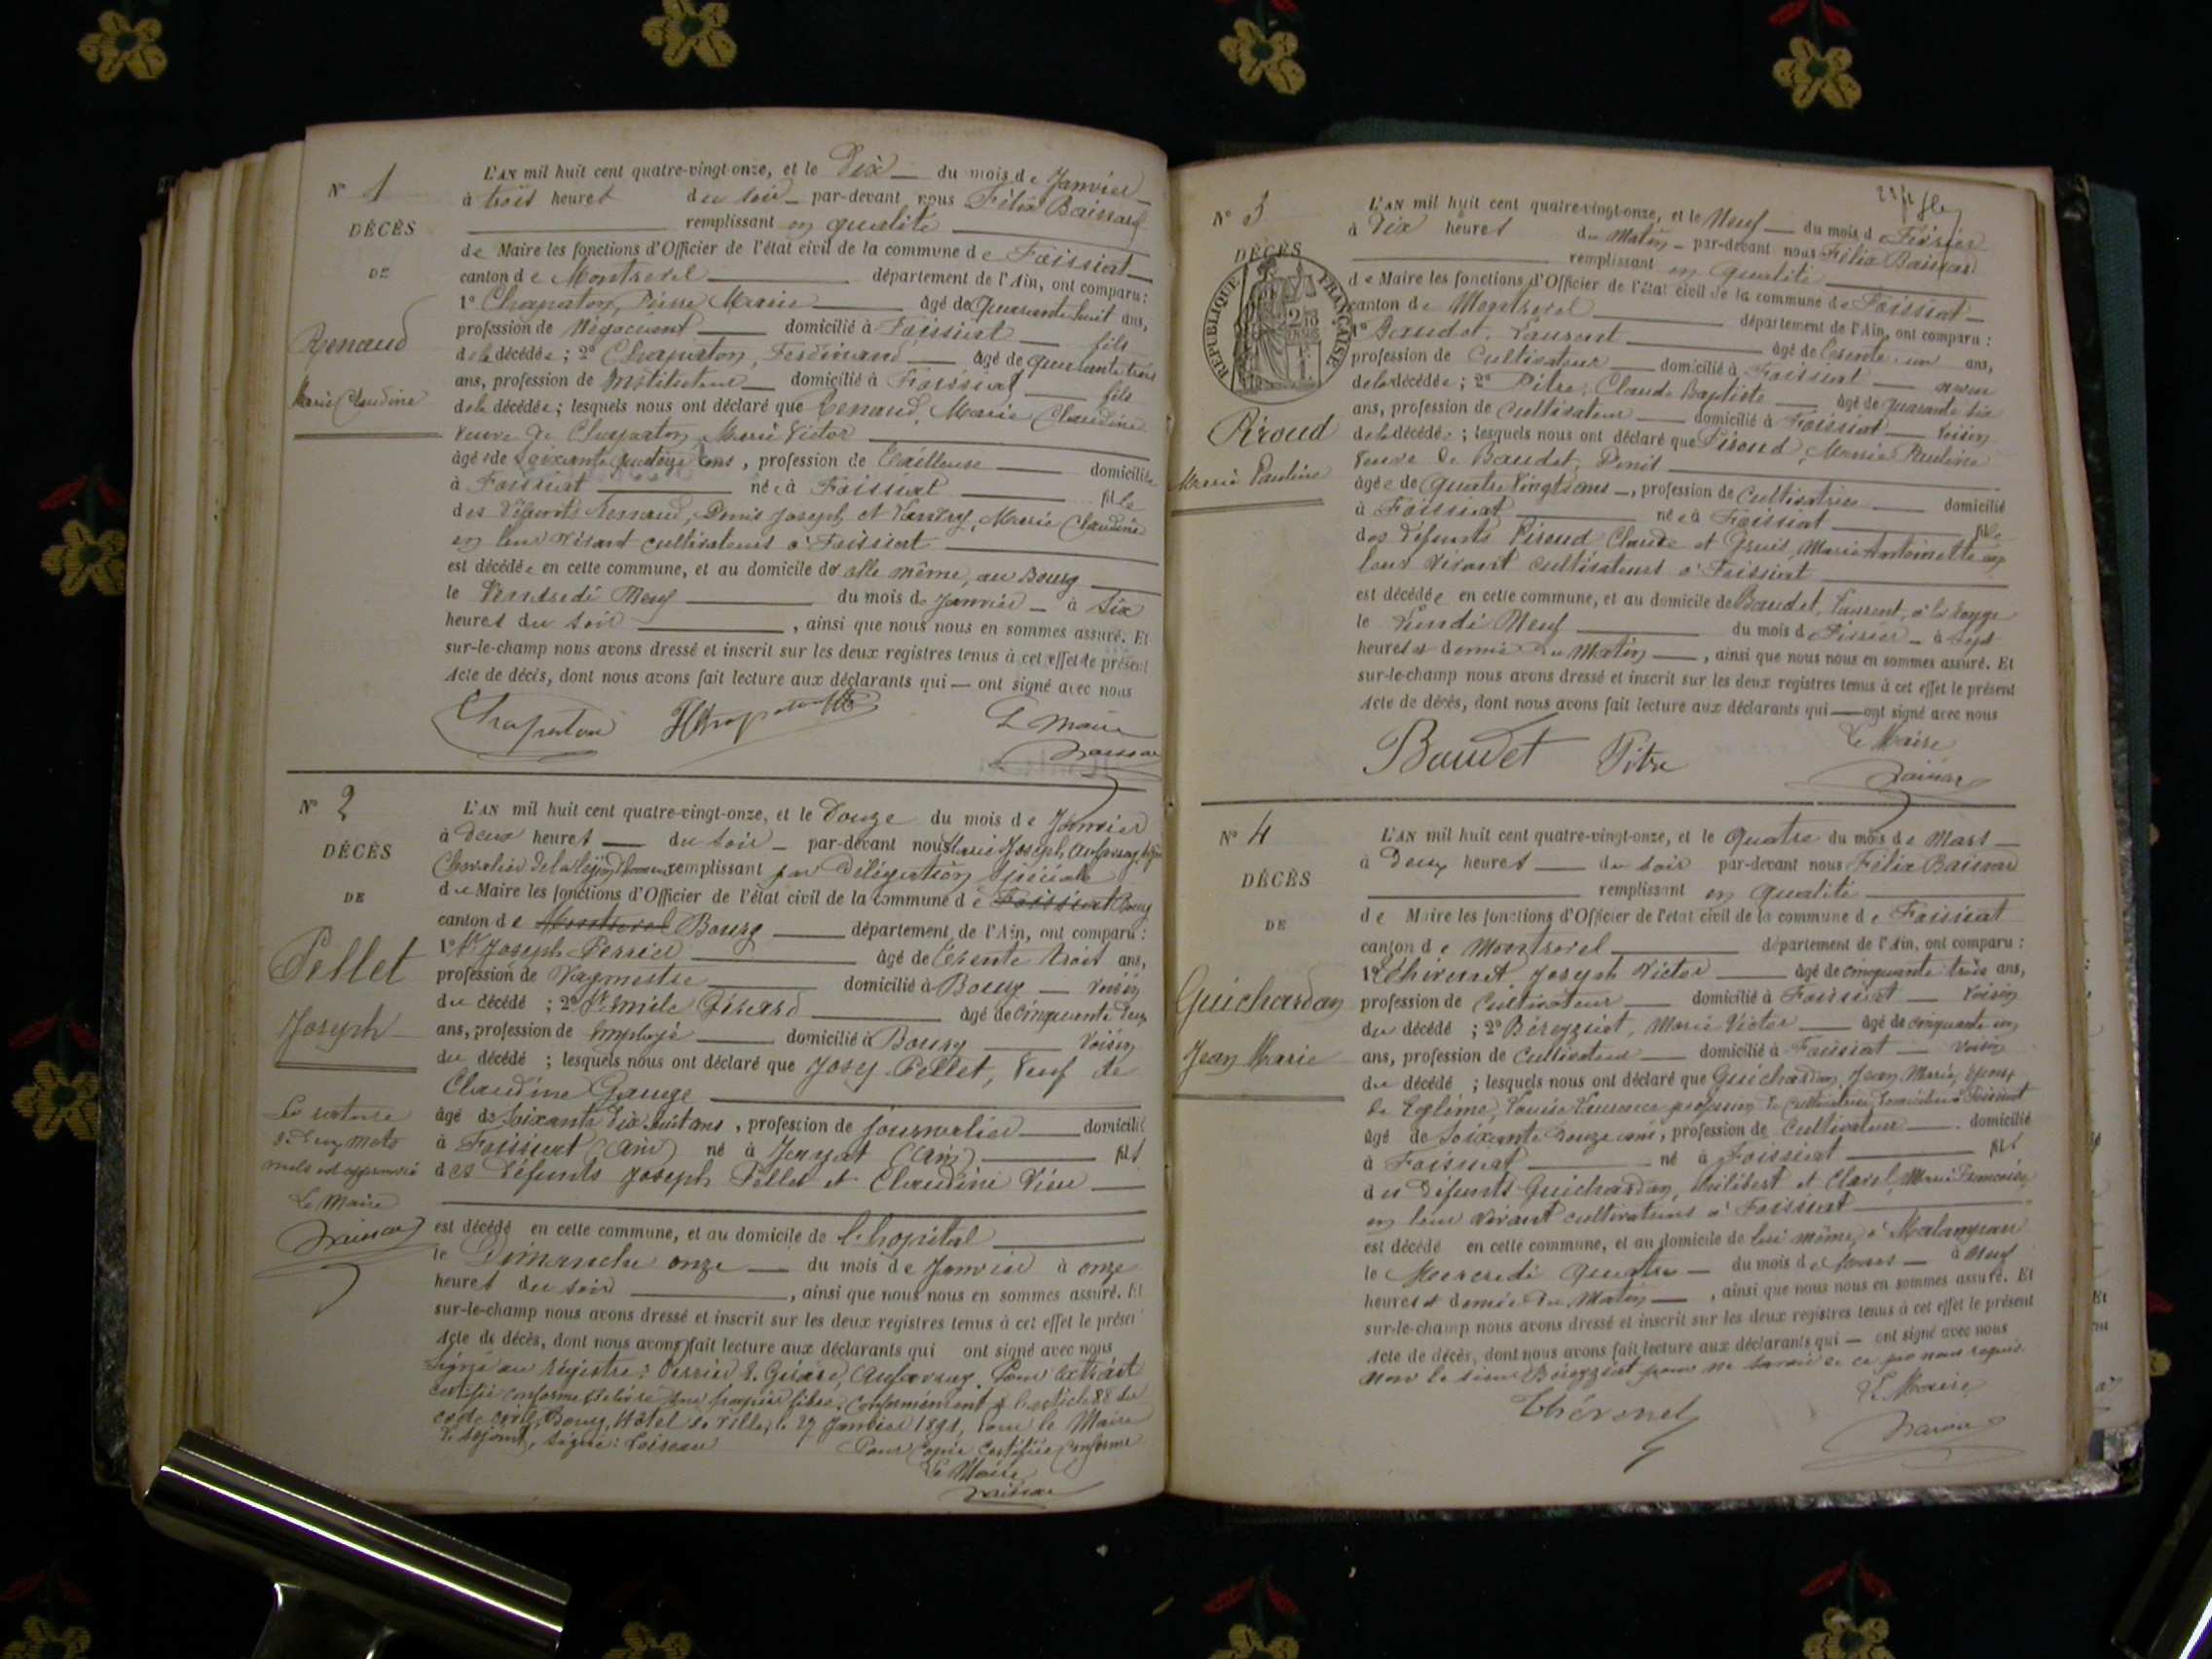 N° 1
DÉCÈS
DE
Renaud
Marie Claudine
L'AN mil huit cent quatre-vingt-onze, et le Dix du mois de Janvier
à trois heures du soir par-devant nous Félix Baissard
remplissant en qualité
de Maire les fonctions d'Officier de l'état civil de la commune de Foissiat
canton de Montrevel département de l'Ain, ont comparu :
1° Chapaton, Pierre Marie âgé de quarante huit ans,
profession de Négociant domicilié à Foissiat fils
de la décédée ; 2° Chapaton, Ferdinand âgé de quarante trois
ans, profession de Instituteur domicilié à Foissiat fils
de la décédée ; lesquels nous ont déclaré que Renaud, Marie Claudine
veuve de Chapaton Marie Victor
âgée de soixante quatorze ans, profession de tailleuse domiciliée
à Foissiat née à Foissiat fille
des défunts Renaud, Denis Joseph et Marie Claudine
en leur vivant cultivateurs à Foissiat
est décédée en cette commune, et au domicile de elle même, au Bourg
le Vendredi Neuf du mois de Janvier à six
heures du soir, ainsi que nous nous en sommes assuré. Et
sur-le-champ nous avons dressé et inscrit sur les deux registres tenus à cet effet le présent
Acte de décès, dont nous avons fait lecture aux déclarants qui ont signé avec nous
Chapaton
Le Maire
Baissard
N° 2
DÉCÈS
DE
Pellet
Joseph
La rature
de deux mots
nuls est approuvée
Le Maire
Baissard
L'AN mil huit cent quatre-vingt-onze, et le Douze du mois de Janvier
à deux heures du soir par-devant nous Marie Joseph
Chevalier de la Légion d'honneur remplissant par délégation spéciale
du Maire les fonctions d'Officier de l'état civil de la commune de Foissiat Bourg
canton de Montrevel Bourg département de l'Ain, ont comparu :
1° Joseph Perrier âgé de soixante trois ans,
profession de Vaguemestre domicilié à Bourg voisin
du décédé ; 2° Emile Girard âgé de cinquante deux
ans, profession de Employé domicilié à Bourg voisin
du décédé ; lesquels nous ont déclaré que Josep Pellet, veuf de
Claudine Gauge
âgé de soixante dix huit ans, profession de journalier domicilié
à Foissiat (Ain) né à Jayat (Ain) fils
des défunts Joseph Pellet et Claudine Vieu
est décédé en cette commune, et au domicile de l'hopital
le Dimanche onze du mois de Janvier à onze
heures du soir, ainsi que nous nous en sommes assuré. Et
sur-le-champ nous avons dressé et inscrit sur les deux registres tenus à cet effet le présent
Acte de décès, dont nous avons fait lecture aux déclarants qui ont signé avec nous
Signé au registre : Perrier E. Girard, Pour extrait
certifié conforme délivré sur papier libre, conformément à l'article 80 du
code civil, Bourg, Hôtel de Ville, le 27 Janvier 1891, pour le Maire
l'adjoint, signé : Loiseau Pour Copie Certifiée Conforme
Le Maire
Baissard
N° 3
DÉCÈS
RÉPUBLIQUE FRANÇAISE
Piroud
Marie Pauline
L'AN mil huit cent quatre-vingt-onze, et le Neuf du mois de Février
à Dix heures du Matin par-devant nous Félix Baissard
remplissant en qualité
de Maire les fonctions d'Officier de l'état civil de la commune de Foissiat
canton de Montrevel département de l'Ain, ont comparu :
1° Baudet, Laurent âgé de soixante un ans,
profession de Cultivateur domicilié à Foissiat neveu
de la décédée ; 2° Pitre, Claude Baptiste âgé de quarante six
ans, profession de Cultivateur domicilié à Foissiat voisin
de la décédée ; lesquels nous ont déclaré que Piroud, Marie Pauline
veuve de Baudet, Denis
âgée de quatre vingts ans, profession de Cultivatrice domicilié
à Foissiat née à Foissiat fille
des défunts Piroud Claude et Marie Antoinette en
leur vivant cultivateurs à Foissiat
est décédée en cette commune, et au domicile de Baudet, Laurent, à
le Lundi Neuf du mois de Février à sept
heures et demie du Matin, ainsi que nous nous en sommes assuré. Et
sur-le-champ nous avons dressé et inscrit sur les deux registres tenus à cet effet le présent
Acte de décès, dont nous avons fait lecture aux déclarants qui ont signé avec nous
Baudet Pitre
Le Maire
Baissard
N° 4
DÉCÈS
DE
Guichardan
Jean Marie
L'AN mil huit cent quatre-vingt-onze, et le Quatre du mois de Mars
à Deux heures du soir par-devant nous Félix Baissard
remplissant en qualité
de Maire les fonctions d'Officier de l'état civil de la commune de Foissiat
canton de Montrevel département de l'Ain, ont comparu :
1° Joseph Victor âgé de cinquante trois ans,
profession de Cultivateur domicilié à Foissiat voisin
du décédé ; 2° Béreyziat, Marie Victor âgé de cinquante un
ans, profession de Cultivateur domicilié à Foissiat voisin
du décédé ; lesquels nous ont déclaré que Guichardan, Jean Marie, époux
de Louise Laurence profession de cultivatrice domiciliée à Foissiat
âgé de soixante douze ans, profession de Cultivateur domicilié
à Foissiat né à Foissiat fils
des défunts Guichardan, Philibert et Clavel, Marie Françoise,
en leur vivant cultivateurs à Foissiat
est décédé en cette commune, et au domicile de lui même, à
le Mercredi quatre du mois de Mars à neuf
heures et demie du Matin, ainsi que nous nous en sommes assuré. Et
sur-le-champ nous avons dressé et inscrit sur les deux registres tenus à cet effet le présent
Acte de décès, dont nous avons fait lecture aux déclarants qui ont signé avec nous
non le sieur Béreyziat pour ne savoir de ce par nous requis.
Le Maire
Baissard